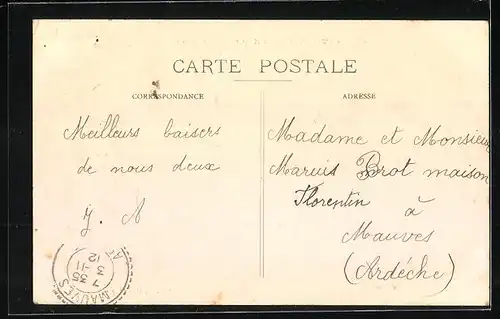 CARTE POSTALE
CORRESPONDANCE
ADRESSE
Meilleurs baisers
de nous deux
J. A
Madame et Monsieur
Maruis Brot maison
Florentin à
Mauves
(Ardèche)
MAUVES
7 35
3 -11
12